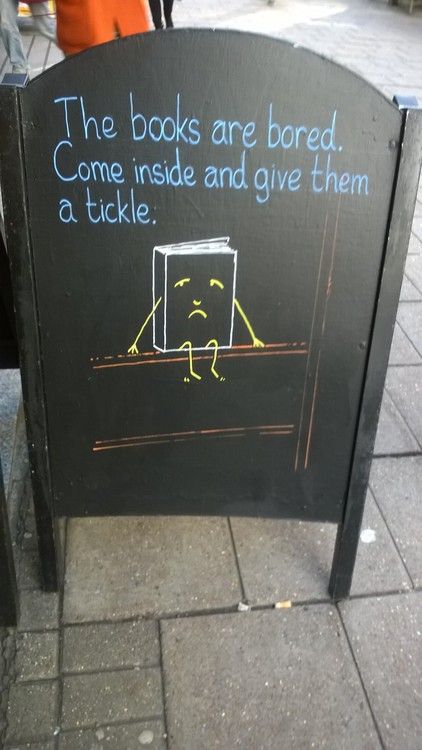 The books are bored.
Come inside and give them
a tickle.